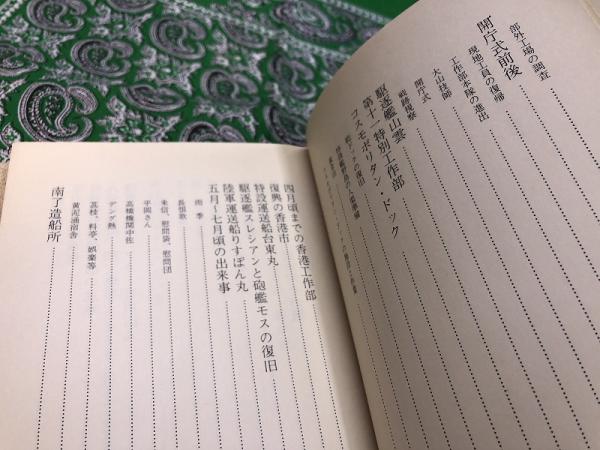 部外工場の調査
開庁式前後
現地工員の復帰
工作部本隊の進出
火山技師
開庁式
戦跡視察
駆逐艦山雲
第十一特別工作部
コスモポリタン、ドック
四月頃までの香港工作部
復興の香港市
特設運送船台東丸
駆逐艦スレシアンと砲艦モスの復旧
陸軍運送船りすぼん丸
五月～七月頃の出来事
雨季
長恨歌
来信、慰問袋、慰問団
平岡さん
高橋機関中佐
デング熱
茘枝、料亭、娯楽等
黄泥涌宿舎
南了造船所